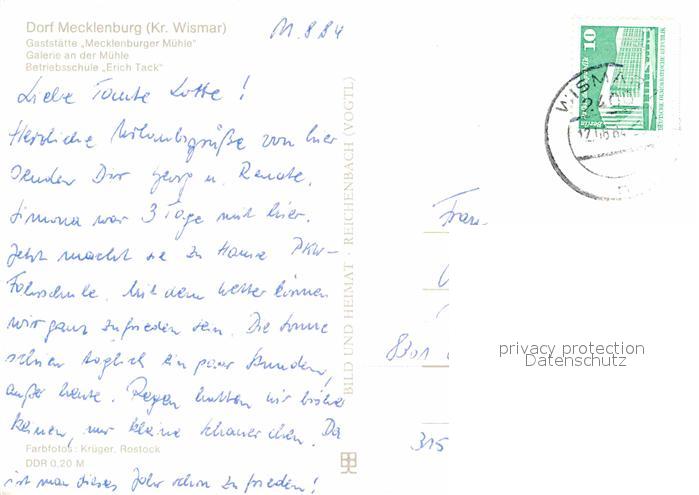 Dorf Mecklenburg (Kr. Wismar)
Gaststätte „Mecklenburger Mühle"
Galerie an der Mühle
Betriebsschule „Erich Tack"
11.8.84
Liebe Tante Lotte!
Herzliche Urlaubsgrüße von hier
senden Dir Georg u. Renate.
Simona war 3 Tage mit hier.
Jetzt macht sie zu Hause PKW-
Fahrschule. Mit dem Wetter können
wir ganz zufrieden sein. Die Sonne
schien täglich ein paar Stunden,
außer heute. Regen hatten wir bisher
keinen, nur kleine Schauerchen. Da
ist man dieses Jahr schon zufrieden!
Farbfotos: Krüger, Rostock
DDR 0,20 M
BILD UND HEIMAT · REICHENBACH (VOGTL)
10
Berlin
WISMA
240
12.08.84
Frau
8301
315
privacy protection
Datenschutz